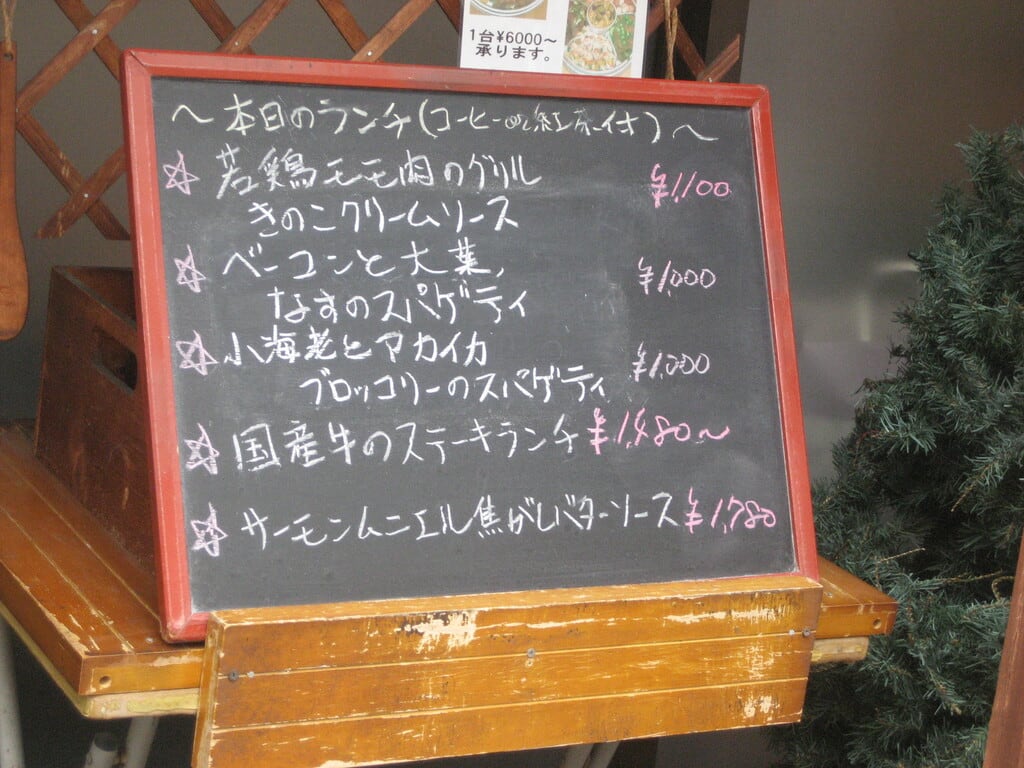 1台¥6000～
承ります。
～本日のランチ(コーヒーor紅茶付)～
☆若鶏モモ肉のグリル ¥1100
きのこクリームソース
☆ベーコンと大葉、 ¥1,000
なすのスパゲティ
☆小海老とアカイカ ¥1,000
ブロッコリーのスパゲティ
☆国産牛のステーキランチ ¥1,480～
☆サーモンムニエル焦がしバターソース ¥1,780